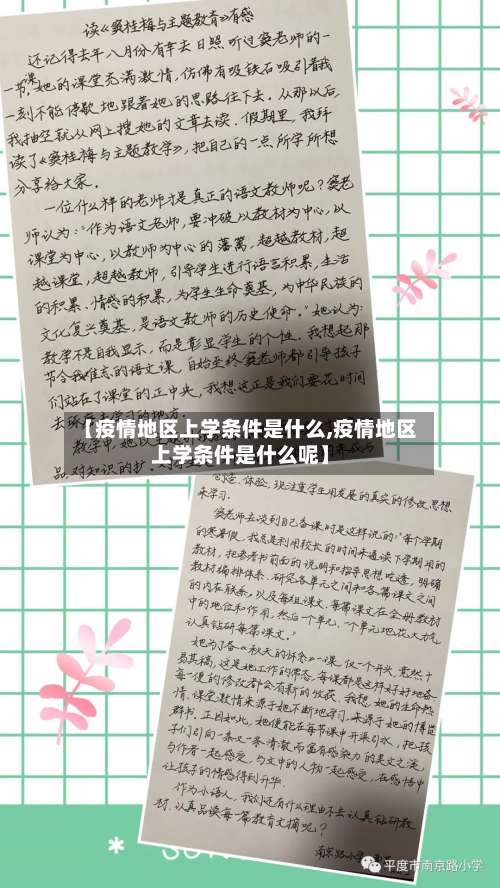 读《窦桂梅与主题教育》有感
还记得去年八月份有幸去日照听过窦老师的一
一节课,她的课堂充满激情,仿佛有吸铁石吸引着我
一刻不能停歇地跟着她的思路往下去。从那以后,
我抽空就从网上搜她的文章去读。假期里,我拜
读了《窦桂梅与主题教学》,把自己的一点所学所想
分享给大家。
一位什么样的老师才是真正的语文教师呢?窦老
师认为:“作为语文老师,要冲破以教材为中心,以
课堂为中心,以教师为中心的藩篱,超越教材,超
越课堂,超越教师,引导学生进行语言积累,生活
的积累、情感的积累,为学生生命奠基,为中华民族的
文化复兴奠基,是语文教师的历史使命。”她认为:
教学不是自我显示,而是彰显学生的个性。我想起那
节令我难忘的语文课,自始至终窦老师都引导孩子
们站在了课堂的正中央,我想这正是我们要花时间
去
教学中,她以
品,对知识的扩
【疫情地区上学条件是什么,疫情地区
上学条件是什么呢】
创造、体验,现注重学生用发展的真实的修改思想
来学习。
窦老师在谈到自己备课时是这样说的:“每个学期
的寒暑假,我总是利用较长的时间来通读下学期用的
教材,把参考书前面的说明和指导思想吃透,明确
教材编排体系,研究各单元之间和各篇课文之间
的内在联系,以及每组课文、每篇课文在全册教材
中的地位和作用,然后一个单元,一个单元地花大力气
认真钻研每篇课文。”
她为了备《秋天的怀念》一课,仅一个开头,竟然十
易其稿,这是她工作的常态。每课都是这样好好地备,
每一遍的修改都会有新的收获。我想,她的生命热
情、课堂激情来源于她不断地学习,来源于她的博览
群书。正因如此,她便能在每节课中开渠引水,把孩
子们引向一条又一条清澈而富有感染力的美文之流,
与作者一起感受,与文中的人物一起感受,在感悟中
让孩子的情感得到升华。
作为小语人,我们还有什么理由不去认真钻研教
材,认真品读每一篇教育文摘呢?
南京路小学
平度市南京路小学